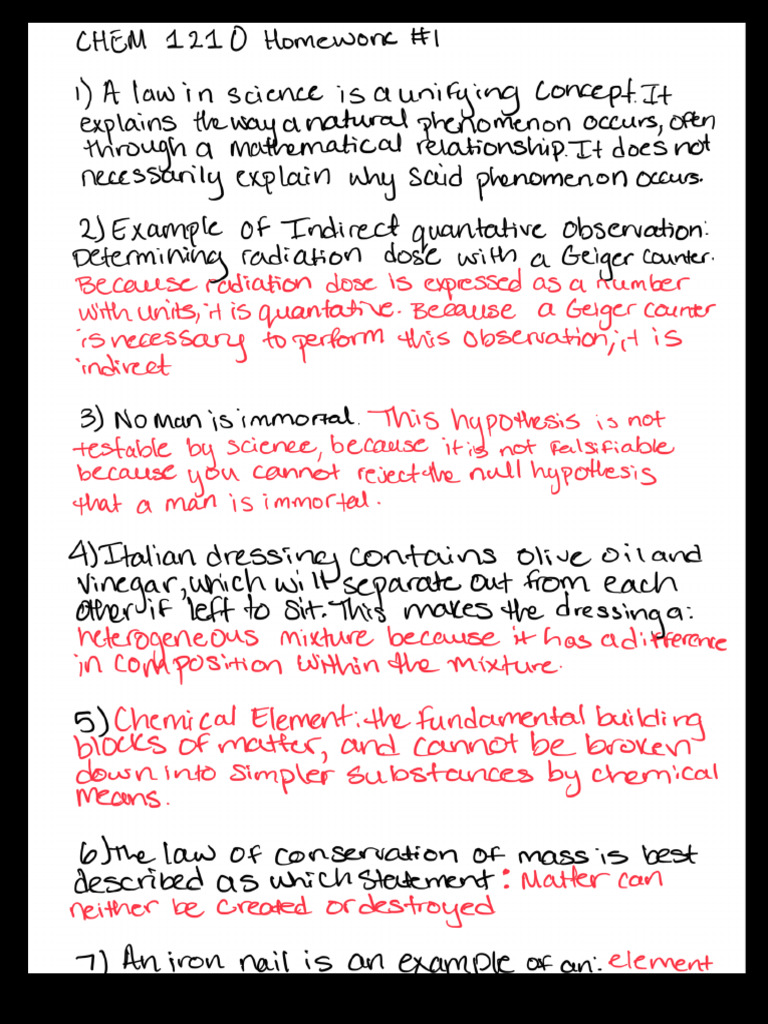 CHEM 1210 Homework #1
1) A law in science is a unifying concept. It
explains the way a natural phenomenon occurs, often
through a mathematical relationship. It does not
necessarily explain why said phenomenon occurs.
2) Example of Indirect quantative observation:
Determining radiation dose with a Geiger counter.
Because radiation dose is expressed as a number
with units, it is quantative. Because a Geiger counter
is necessary to perform this observation, it is
indirect
3) No man is immortal. This hypothesis is not
testable by science, because it is not falsifiable
because you cannot reject the null hypothesis
that a man is immortal.
4) Italian dressing contains olive oil and
vinegar, which will separate out from each
other if left to sit. This makes the dressing a:
heterogeneous mixture because it has a difference
in composition within the mixture.
5) Chemical Element: the fundamental building
blocks of matter, and cannot be broken
down into simpler substances by chemical
means.
6) The law of conservation of mass is best
described as which statement: Matter can
neither be created or destroyed
7) An iron nail is an example of an: element